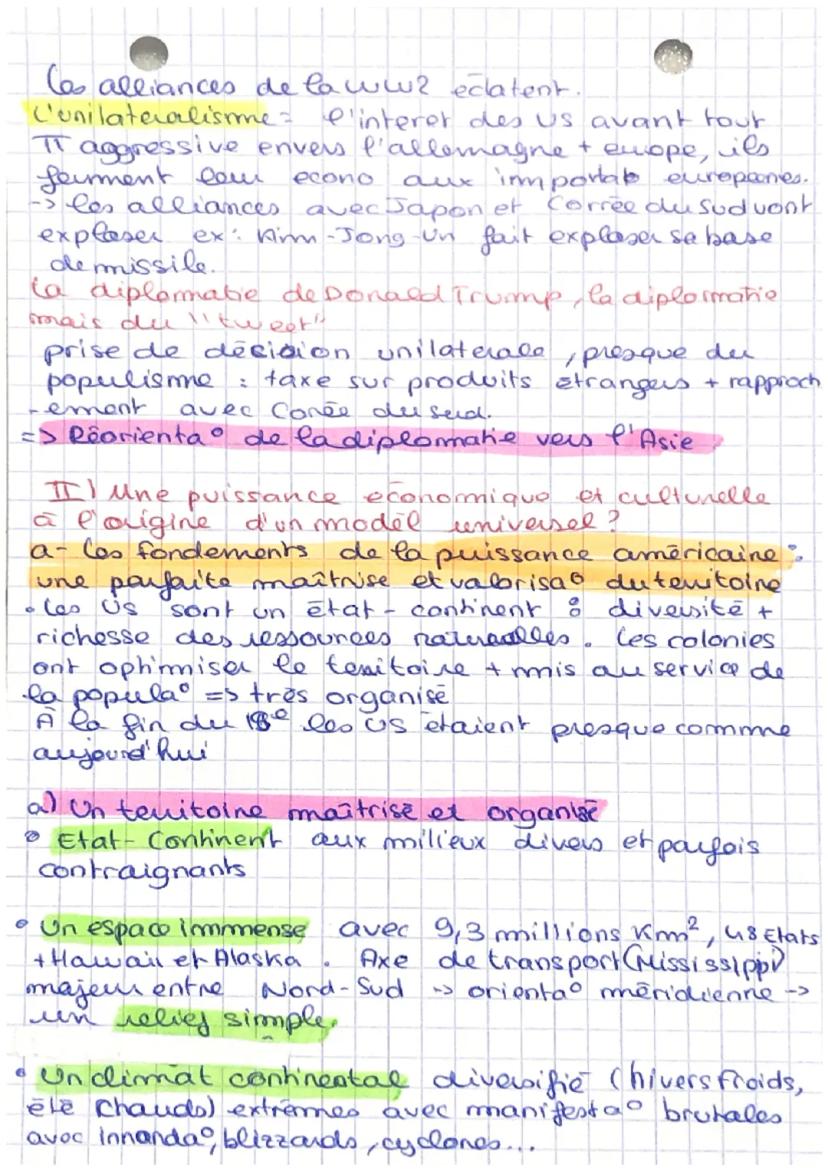 Les alliances de la WW2 éclatent.
L'unilateralisme = l'interet des US avant tout
π aggressive envers l'allemagne + europe, ils
ferment leur econo aux importat° européenes.
-> les alliances avec Japon et Corrée du Sud vont
exploser ex : Kim-Jong-Un fait exploser sa base
de missile.
La diplomatie de Donald Trump, la diplomatie
mais du "tweet"
prise de décision unilaterale, presque du
populisme : taxe sur produits étrangers + rapproch
-ement avec Corée du sud.
=> Réorienta° de la diplomatie vers l'Asie.
II) Une puissance économique et culturelle
à l'origine d'un modèl universel ?
a- Les fondements de la puissance américaine :
une parfaite maîtrise et valorisa° du territoire
• Les US sont un état-continent : diversité +
richesse des ressources naturelles. Les colonies
ont optimiser le territoire + mis au service de
la popula° => très organisé
À la fin du 18e les US étaient presque comme
aujourd'hui
a) Un territoire maîtrisé et organisé
• Etat-Continent aux milieux divers et parfois
contraignants
• Un espace immense avec 9,3 millions Km², 48 Etats
+ Hawaii et Alaska. Axe de transport (Mississippi)
majeur entre Nord-Sud -> orienta° méridienne ->
un relief simple.
• Un climat continental diversifié (hivers froids,
été chauds) extrêmes avec manifesta° brutales
avec innonda°, blizzards, cyclones...